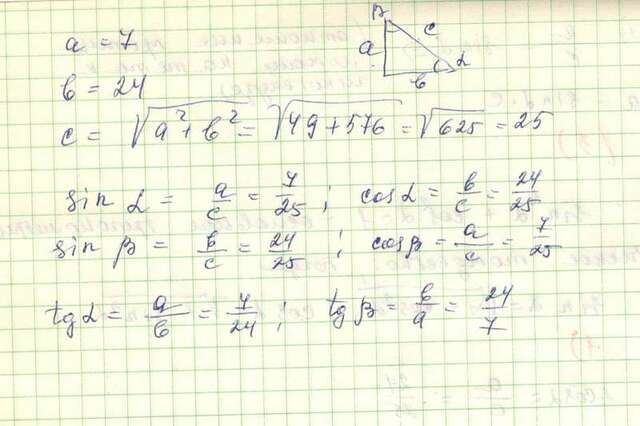 β
a = 7
a
c
α
b = 24
b
c = √a² + b² = √49 + 576 = √625 = 25
sin α = a/c = 7/25 ; cos α = b/c = 24/25
sin β = b/c = 24/25 ; cos β = a/c = 7/25
tg α = a/b = 7/24 ; tg β = b/a = 24/7